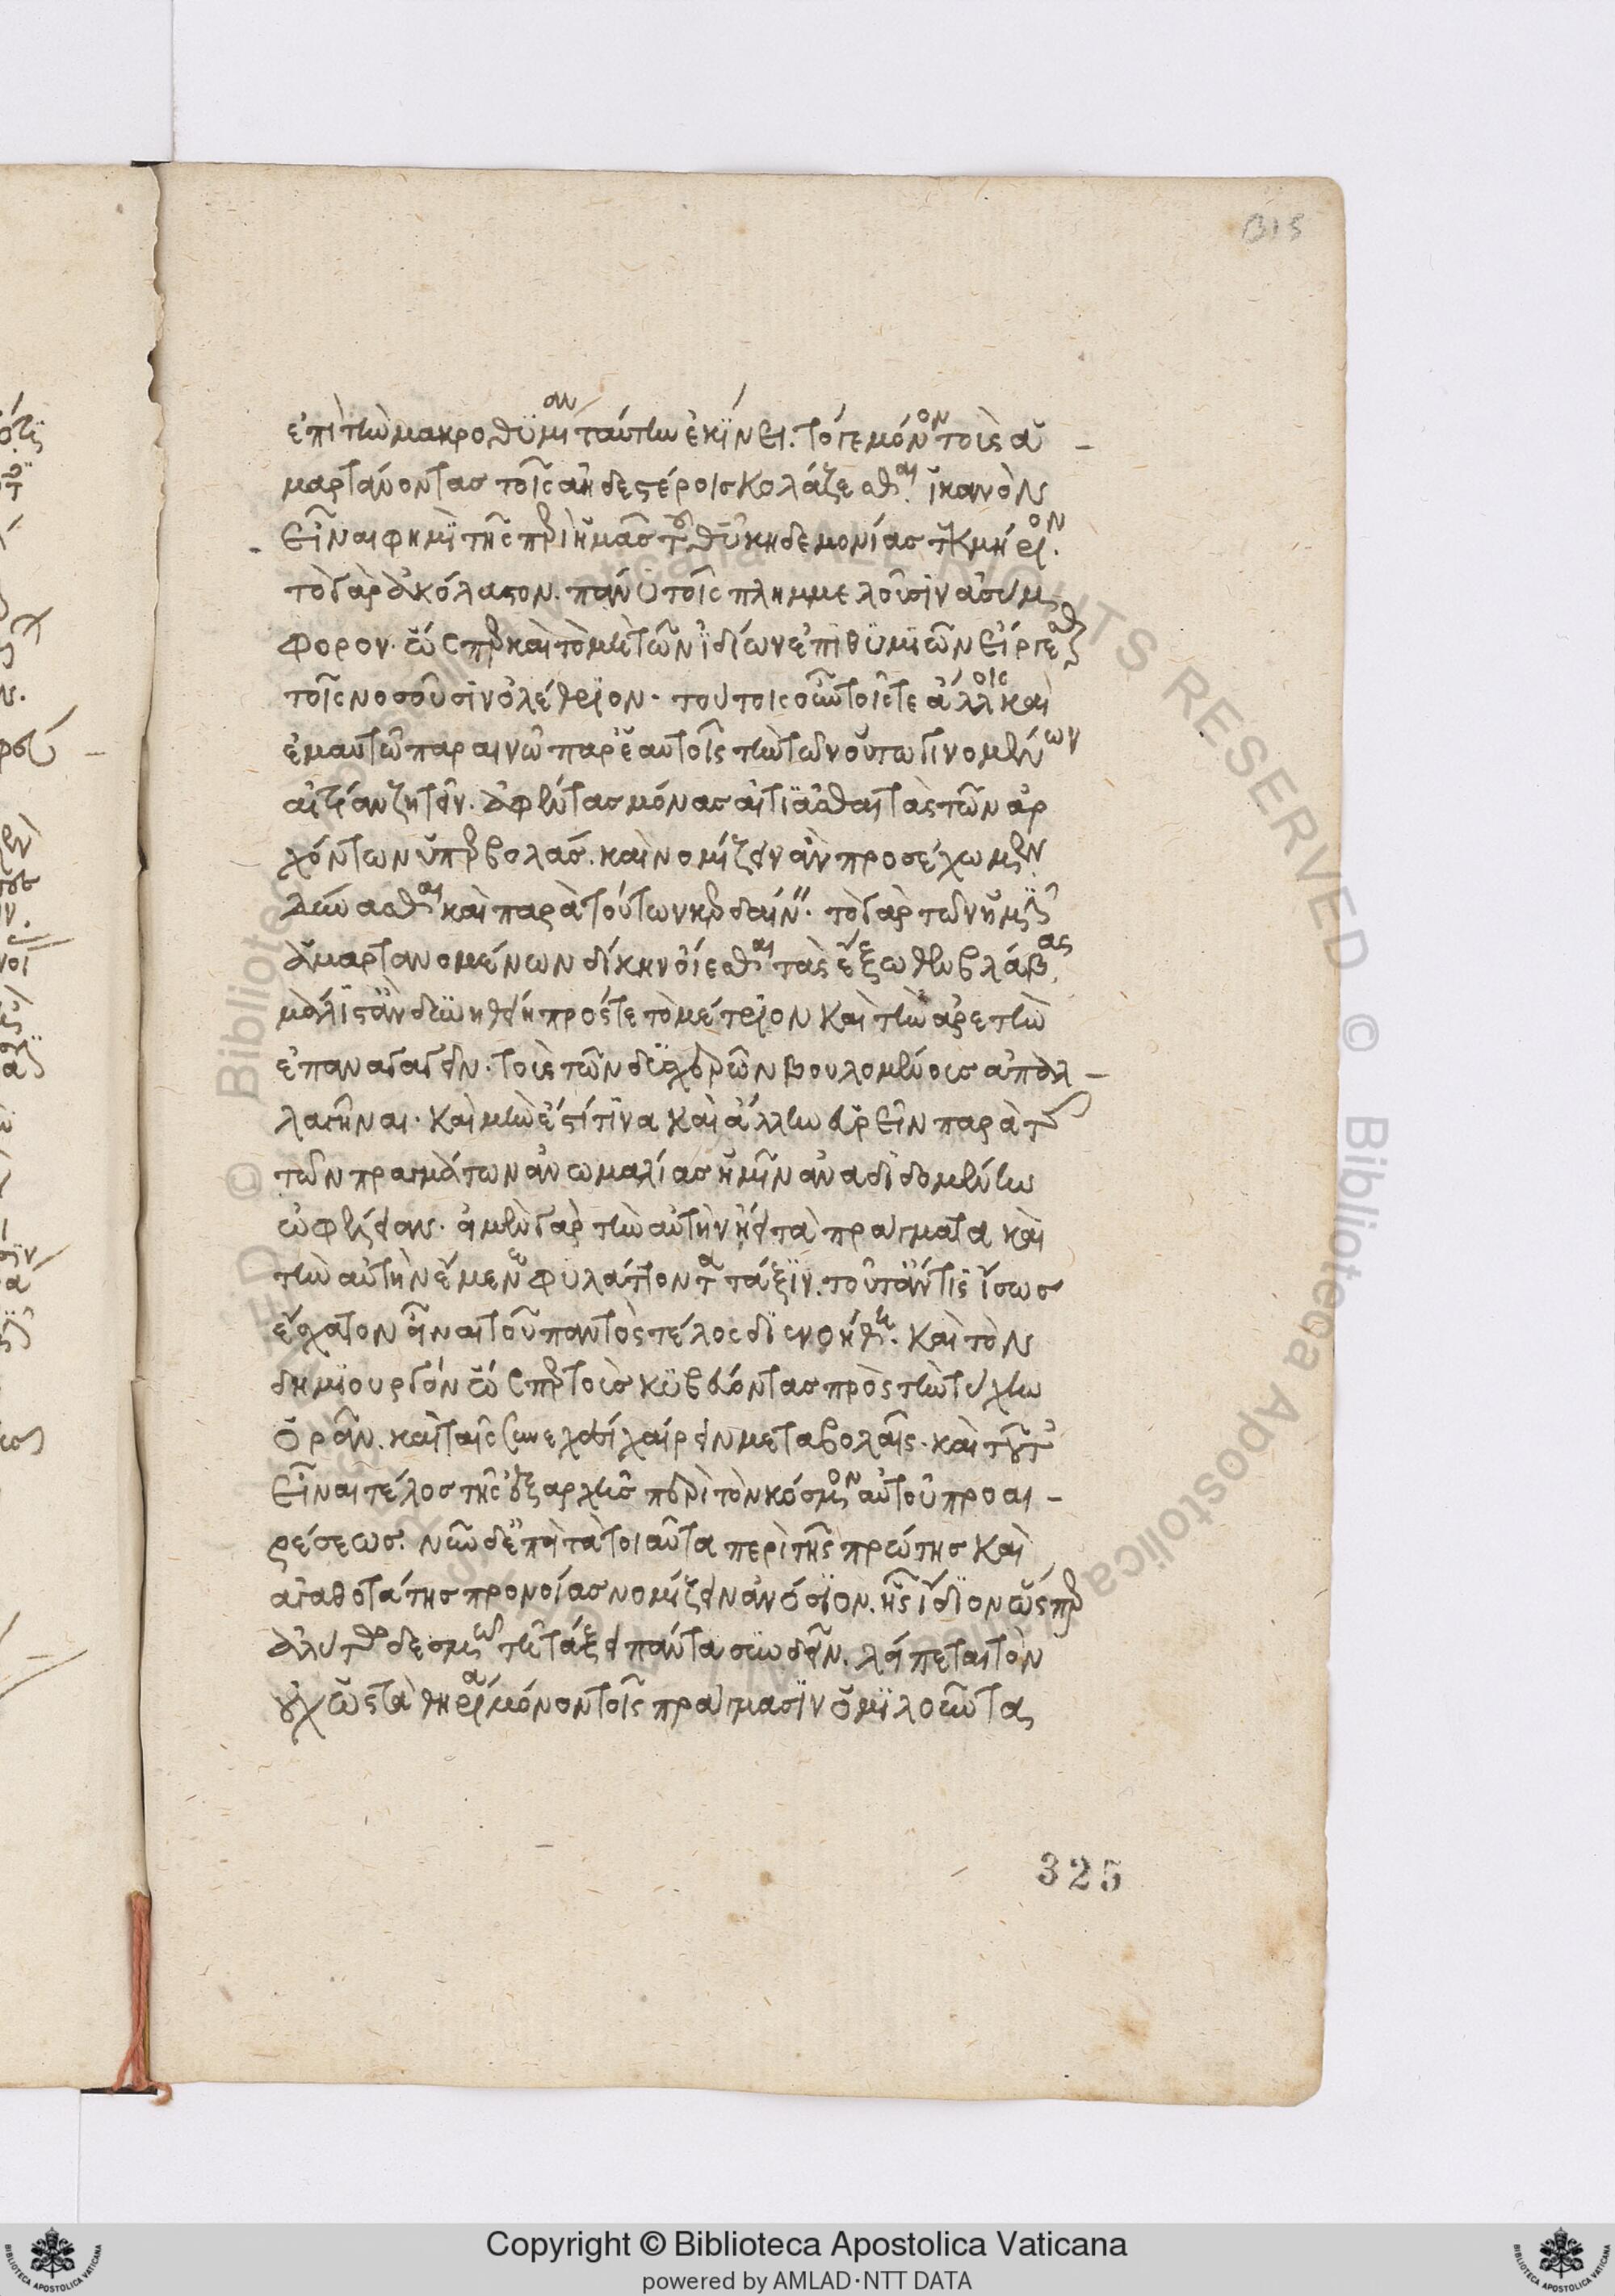 ἐπὶ τὴν μακροθυμίαν ταύτην ἐκίνει. τό γε μόνον τοὺς ἁ-
μαρτάνοντας τοῖς ἀηδεστέροις κολάζεσθαι ἱκανὸν
εἶναί φημι τῆς περὶ ἡμᾶς τοῦ θεοῦ κηδεμονίας τεκμήριον.
τὸ γὰρ ἀκόλαστον. πάνυ τοῖς πλημμελοῦσιν ἀσύμ
φορον. ὥσπερ καὶ τὸ μὴ τῶν ἰδίων ἐπιθυμιῶν εἴργεσθαι
τοῖς νοσοῦσιν ὀλέθριον. τούτοις οὖν τοῖς τε ἄλλοις καὶ
ἐμαυτῷ παραινῶ παρ' ἑαυτοῖς τὴν τῶν οὕτω γινομένων
αἰτίαν ζητεῖν. ἀφέντας μόνας αἰτιᾶσθαι τὰς τῶν ἀρ
χόντων ὑπερβολάς. καὶ νομίζειν ἂν προσέχωμεν
δύνασθαι καὶ παρὰ τούτων κερδαίνειν. τὸ γὰρ τῶν ἡμῖν
ἁμαρτανομένων δίκην οἴεσθαι τὰς ἔξωθεν βλάβας
μάλιστ' ἂν δυνηθείη πρός τε τὸ μέτριον καὶ τὴν ἀρετὴν
ἐπαναγαγεῖν. τοὺς τῶν δυσχερῶν βουλομένους ἀπαλ-
λαγῆναι. καὶ μὴν ἔστί τινα καὶ ἄλλην εὑρεῖν παρὰ τῆς
τῶν πραγμάτων ἀνωμαλίας ἡμῖν ἀναδιδομένην
ὠφέλειαν. εἰ μὲν γὰρ τὴν αὐτὴν ᾔει τὰ πράγματα καὶ
τὴν αὐτὴν ἔμενε φυλάττοντα τάξιν. τοῦτ' ἄν τις ἴσως
ἔσχατον εἶναι τοῦ παντὸς τέλος διενοήθη. καὶ τὸν
δημιουργὸν ὥσπερ τοὺς κυβεύοντας πρὸς τὴν τύχην
ὁρᾶν. καὶ ταῖς συνεχέσι χαίρειν μεταβολαῖς. καὶ τοῦτ'
εἶναι τέλος τῆς ἐξαρχῆς περὶ τὸν κόσμον αὐτοῦ προαι-
ρέσεως. νῦν δ' ἐπεὶ τὰ τοιαῦτα περὶ τῆς πρώτης καὶ
ἀγαθοτάτης προνοίας νομίζειν ἀνόσιον. ἧς ἴδιον ὥσπερ
ἀλύτῳ δεσμῷ τῇ τάξει πάντα συνδεῖν. λείπεται τὸν
οὐχ ὥστε θηρία μόνον τοῖς πράγμασιν ὁμιλοῦντα
325
Copyright © Biblioteca Apostolica Vaticana
powered by AMLAD·NTT DATA